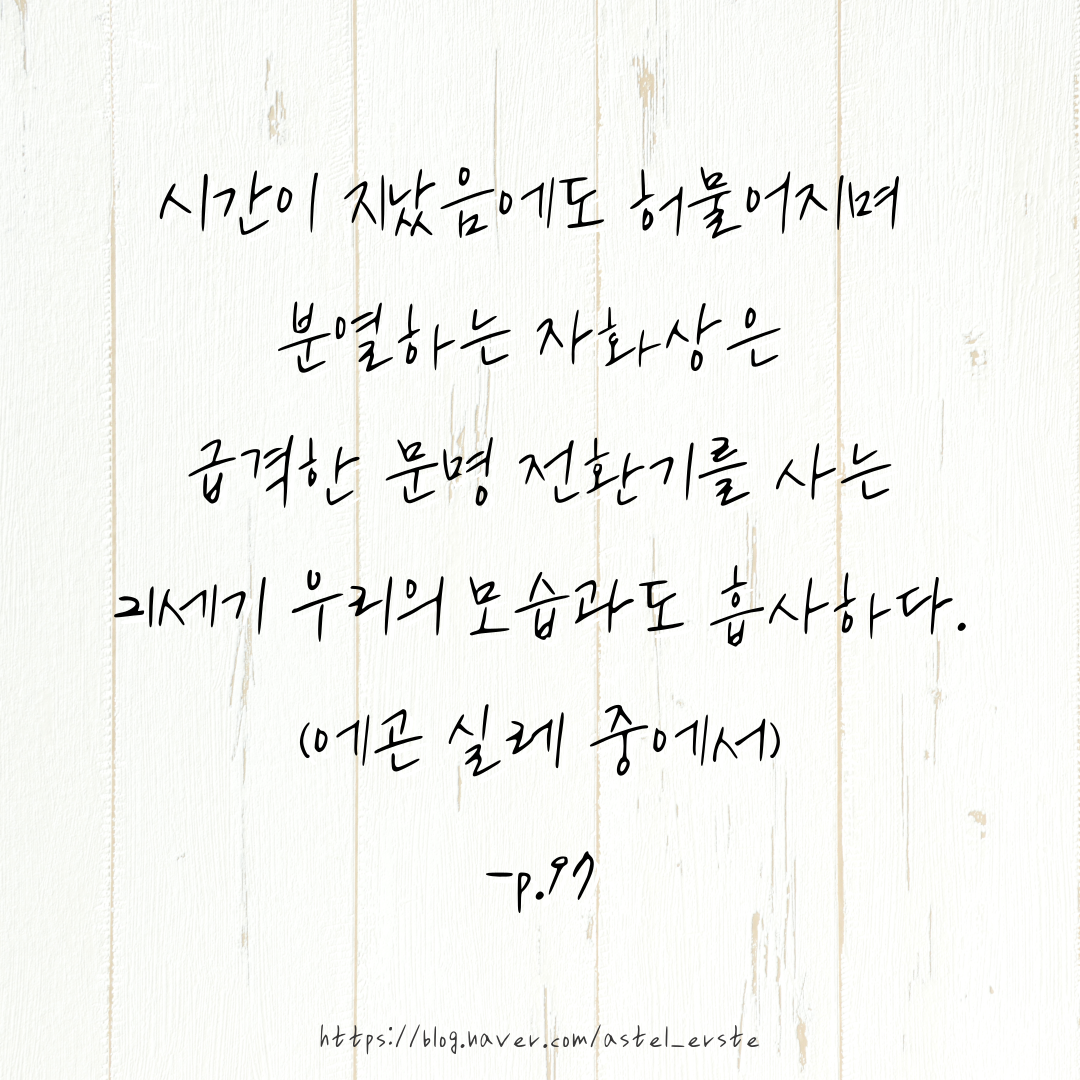 시간이 지났음에도 허물어지며
분열하는 자화상은
급격한 문명 전환기를 사는
21세기 우리의 모습과도 흡사하다.
(에곤 실레 중에서)
-p.97
https://blog.naver.com/astel_erste